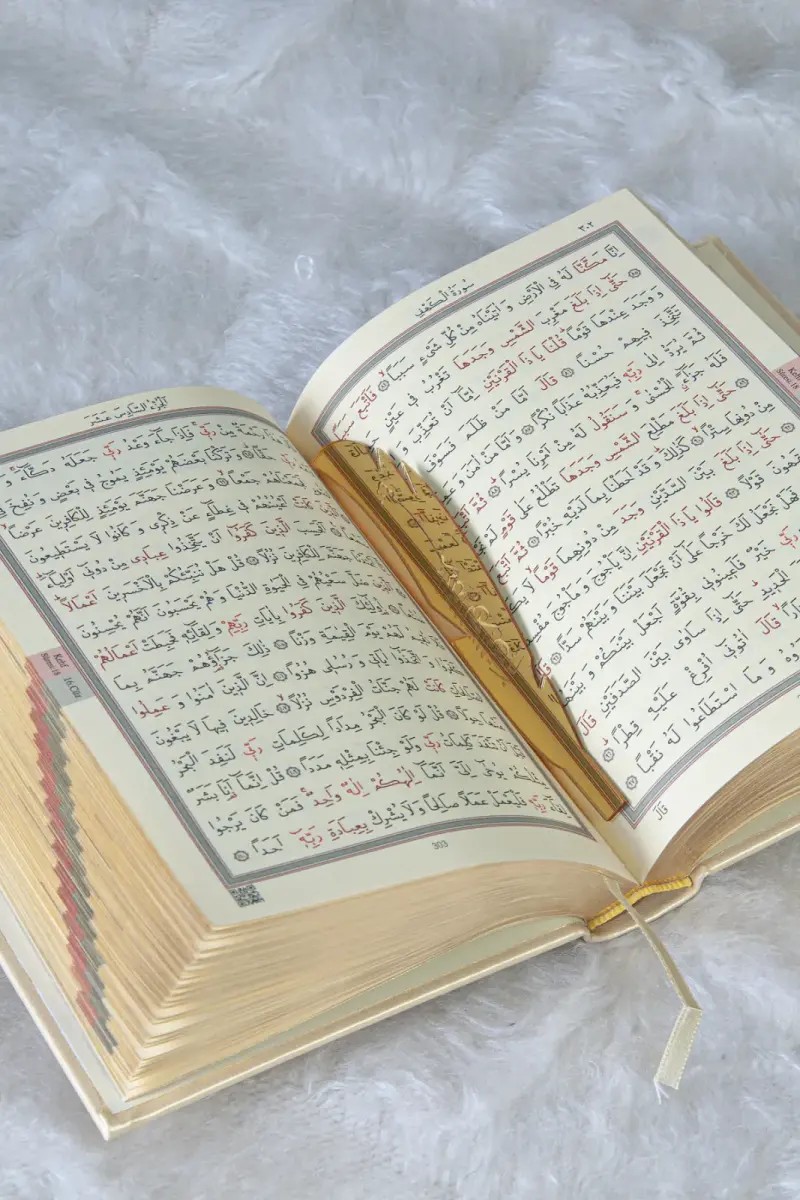 ٣٠٢
سُورَةُ الْكَهْفِ
اِنَّا مَكَّنَّا لَهُ فِي الْاَرْضِ وَاٰتَيْنَاهُ مِنْ كُلِّ شَيْءٍ سَبَبًاۙ ﴿٨٤﴾ فَاَتْبَعَ سَبَبًا
حَتّٰٓى اِذَا بَلَغَ مَغْرِبَ الشَّمْسِ وَجَدَهَا تَغْرُبُ فِي عَيْنٍ
وَ وَجَدَ عِنْدَهَا قَوْمًاۜ قُلْنَا يَا ذَا الْقَرْنَيْنِ اِمَّٓا اَنْ تُعَذِّبَ
تَتَّخِذَ فِيهِمْ حُسْنًا ﴿٨٦﴾ قَالَ اَمَّا مَنْ ظَلَمَ فَسَوْفَ
ثُمَّ يُرَدُّ اِلٰى رَبِّهِ فَيُعَذِّبُهُ عَذَابًا نُكْرًا ﴿٨٧﴾ وَاَمَّا مَنْ اٰمَنَ
فَلَهُ جَزَٓاءًۨ الْحُسْنٰىۚ وَسَنَقُولُ لَهُ مِنْ اَمْرِنَا يُسْرًاۜ ﴿٨٨﴾ ثُمَّ
حَتّٰٓى اِذَا بَلَغَ مَطْلِعَ الشَّمْسِ وَجَدَهَا تَطْلُعُ عَلٰى قَوْمٍ لَمْ
مِنْ دُونِهَا سِتْرًاۙ ﴿٩٠﴾ كَذٰلِكَۜ وَقَدْ اَحَطْنَا بِمَا لَدَيْهِ خُبْرًا ﴿٩١﴾ ثُمَّ اَتْبَعَ
حَتّٰٓى اِذَا بَلَغَ بَيْنَ السَّدَّيْنِ وَجَدَ مِنْ دُونِهِمَا قَوْمًاۙ لَا
يَفْقَهُونَ قَوْلًا ﴿٩٣﴾ قَالُوا يَا ذَا الْقَرْنَيْنِ اِنَّ يَأْجُوجَ وَمَأْجُوجَ
فَهَلْ نَجْعَلُ لَكَ خَرْجًا عَلٰٓى اَنْ تَجْعَلَ بَيْنَنَا وَبَيْنَهُمْ سَدًّا ﴿٩٤﴾ قَالَ
رَبِّي خَيْرٌ فَاَعِينُونِي بِقُوَّةٍ اَجْعَلْ بَيْنَكُمْ وَبَيْنَهُمْ
الْحَدِيدِۜ حَتّٰٓى اِذَا سَاوٰى بَيْنَ الصَّدَفَيْنِ قَالَ
نَارًاۙ قَالَ اٰتُونِٓي اُفْرِغْ عَلَيْهِ قِطْرًاۜ ﴿٩٦﴾
وَمَا اسْتَطَاعُوا لَهُ نَقْبًا ﴿٩٧﴾
قَالَ
Kehf
Sûresi 18
اَلْجُزْءُ السَّادِسَ عَشَرَ
رَحْمَةٌ مِنْ رَبِّيۚ فَاِذَا جَٓاءَ وَعْدُ رَبِّي جَعَلَهُ دَكَّٓاءَۚ وَ
رَبِّي حَقًّاۜ ﴿٩٨﴾ وَتَرَكْنَا بَعْضَهُمْ يَوْمَئِذٍ يَمُوجُ فِي بَعْضٍ وَنُفِخَ فِي
فَجَمَعْنَاهُمْ جَمْعًاۙ ﴿٩٩﴾ وَعَرَضْنَا جَهَنَّمَ يَوْمَئِذٍ لِلْكَافِرِينَ عَرْضًاۙ
كَانَتْ اَعْيُنُهُمْ فِي غِطَٓاءٍ عَنْ ذِكْرِي وَكَانُوا لَا يَسْتَطِيعُونَ
اَفَحَسِبَ الَّذِينَ كَفَرُٓوا اَنْ يَتَّخِذُوا عِبَادِي مِنْ دُونِٓي اَوْلِيَٓاءَۜ
جَهَنَّمَ لِلْكَافِرِينَ نُزُلًا ﴿١٠٢﴾ قُلْ هَلْ نُنَبِّئُكُمْ بِالْاَخْسَرِينَ اَعْمَالًاۜ
ضَلَّ سَعْيُهُمْ فِي الْحَيٰوةِ الدُّنْيَا وَهُمْ يَحْسَبُونَ اَنَّهُمْ يُحْسِنُونَ
اُو۬لٰٓئِكَ الَّذِينَ كَفَرُوا بِاٰيَاتِ رَبِّهِمْ وَلِقَٓائِهِ فَحَبِطَتْ اَعْمَالُهُمْ
لَهُمْ يَوْمَ الْقِيٰمَةِ وَزْنًا ﴿١٠٥﴾ ذٰلِكَ جَزَٓاؤُ۬هُمْ جَهَنَّمُ بِمَا
كَفَرُوا وَاتَّخَذُٓوا اٰيَاتِي وَرُسُلِي هُزُوًا ﴿١٠٦﴾ اِنَّ الَّذِينَ اٰمَنُوا وَعَمِلُوا
الصَّالِحَاتِ كَانَتْ لَهُمْ جَنَّاتُ الْفِرْدَوْسِ نُزُلًاۙ ﴿١٠٧﴾ خَالِدِينَ فِيهَا لَا يَبْغُونَ
حِوَلًا ﴿١٠٨﴾ قُلْ لَوْ كَانَ الْبَحْرُ مِدَادًا لِكَلِمَاتِ رَبِّي لَنَفِدَ الْبَحْرُ
اَنْ تَنْفَدَ كَلِمَاتُ رَبِّي وَلَوْ جِئْنَا بِمِثْلِهِ مَدَدًا ﴿١٠٩﴾ قُلْ اِنَّمَٓا اَنَا۬ بَشَرٌ
مِثْلُكُمْ يُوحٰٓى اِلَيَّ اَنَّمَٓا اِلٰهُكُمْ اِلٰهٌ وَاحِدٌۚ فَمَنْ كَانَ يَرْجُوا
لِقَٓاءَ رَبِّهِ فَلْيَعْمَلْ عَمَلًا صَالِحًا وَلَا يُشْرِكْ بِعِبَادَةِ رَبِّهِٓ اَحَدًا ﴿١١٠﴾
303
Kehf
Sûresi 18
16.Cüz